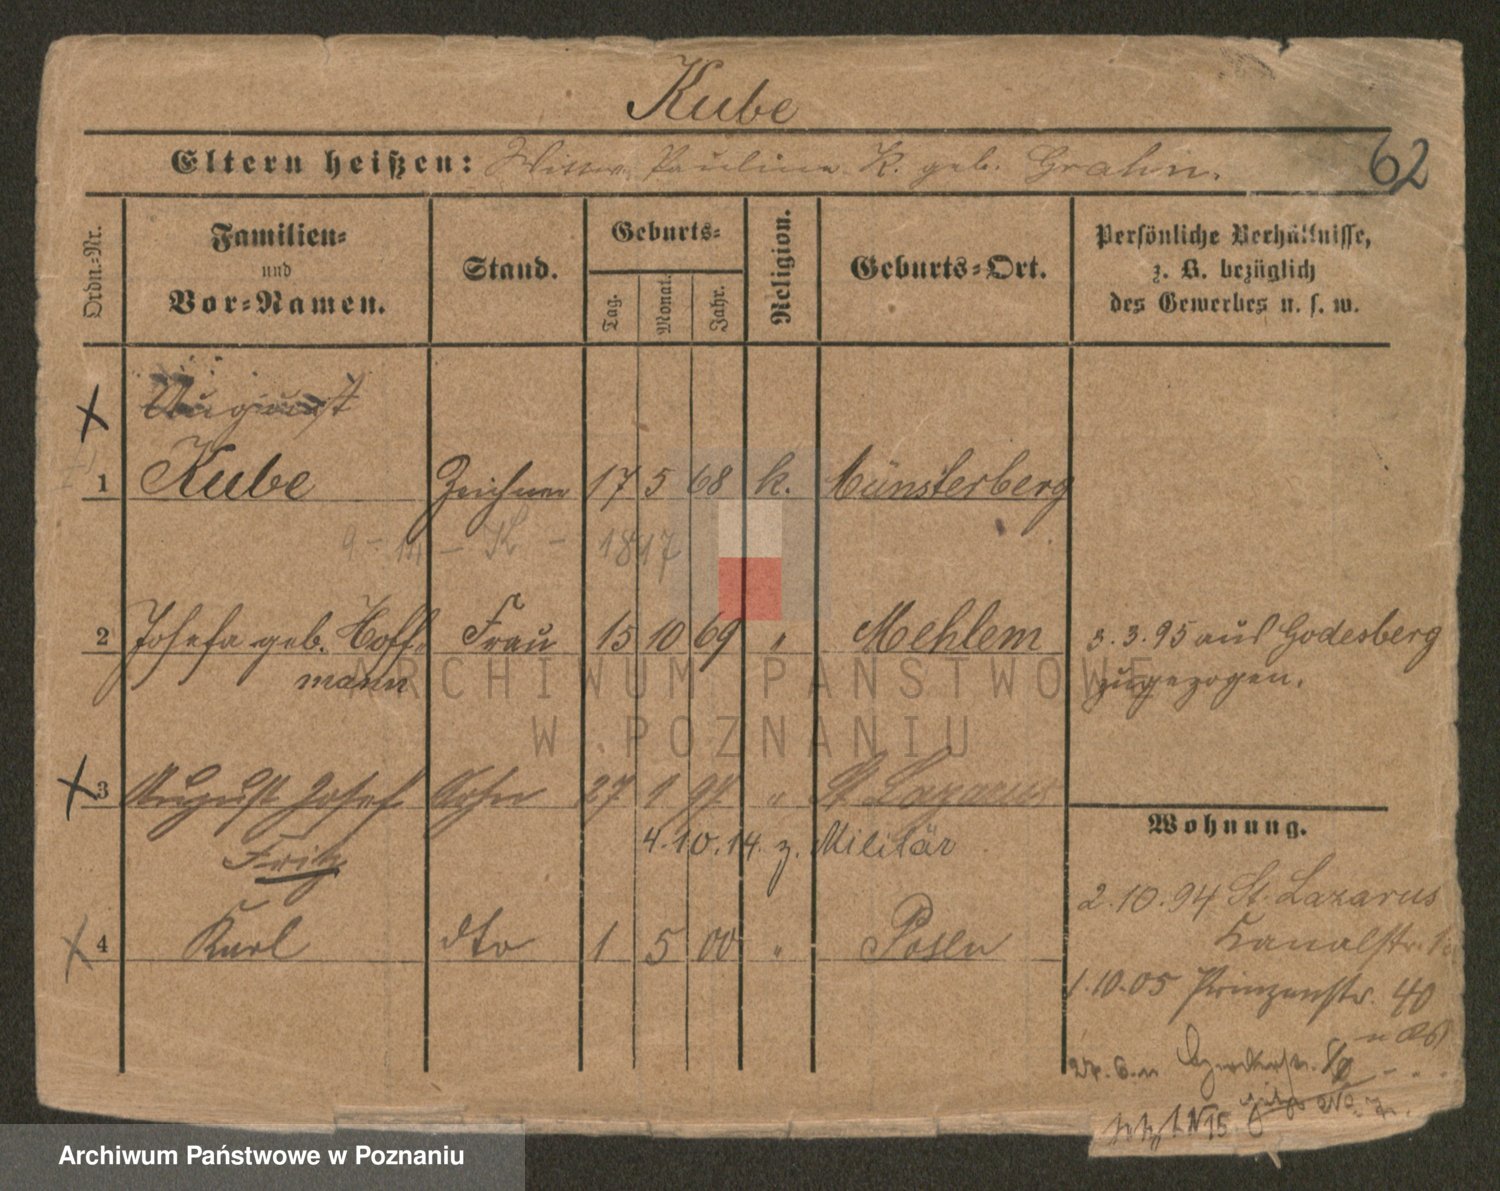 Kube
Eltern heißen: Witwe Pauline K. geb. Grahn.
62
Ordn.-Nr.
Familien-
und
Vor-Namen.
Stand.
Geburts-
Tag.
Monat.
Jahr.
Religion.
Geburts-Ort.
Persönliche Verhältnisse,
z. B. bezüglich
des Gewerbes u. s. w.
August
1 Kube Zeichner 17 5 68 k. Münsterberg
9 - 14 - K - 1847
2 Josefa geb. Hoff- Frau 15 10 69 " Mehlem
mann
3.3.95 aus Godesberg
zugezogen.
ARCHIWUM PAŃSTWOWE
W POZNANIU
3 August Josef Sohn 27 1 97 " St. Lazarus
4.10.14. z. Militär
Fritz
4 Karl dto 1 5 00 " Posen
Wohnung.
2.10.94 St. Lazarus
Kanalstr.
1.10.05 Prinzenstr. 40
jetzt N 15
Archiwum Państwowe w Poznaniu